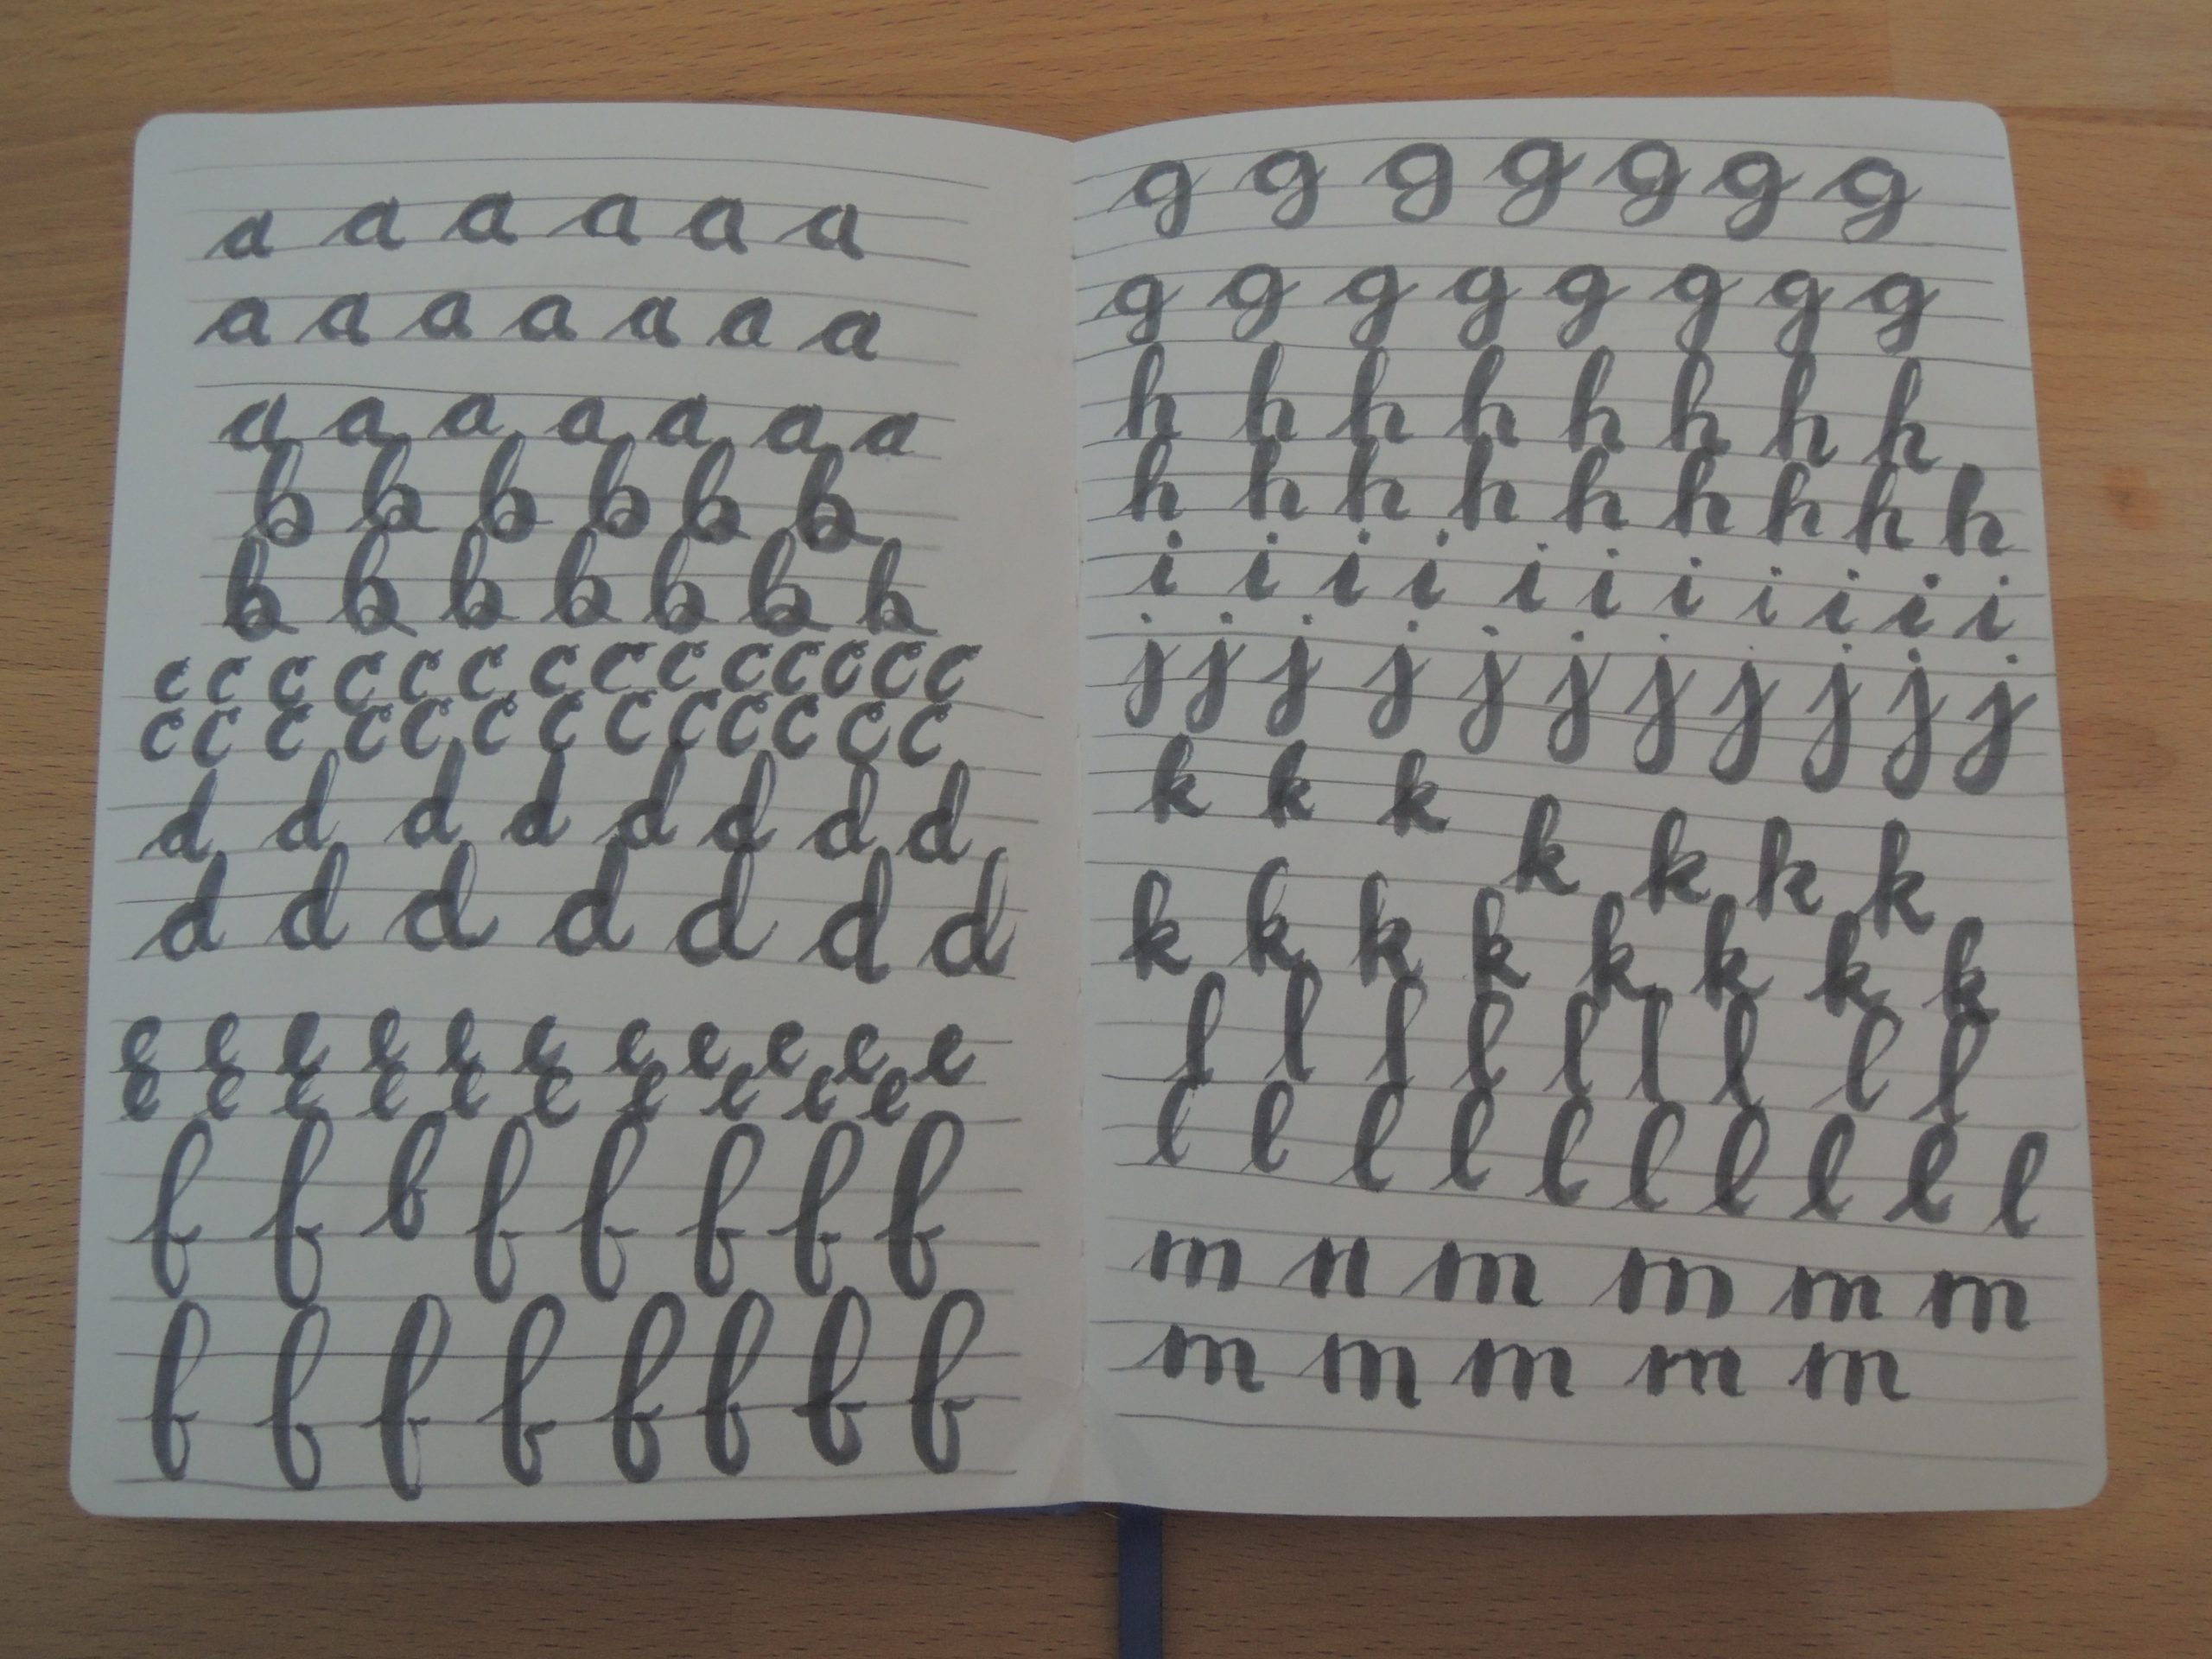 a a a a a a
a a a a a a a
a a a a a a a
b b b b b b
b b b b b b h
c c c c c c c c c c c c c c
c c c c c c c c c c c c c
d d d d d d d d
d d d d d d d
e e e e e e e e e e e
e e e e e e e e e e
f f b f f f f f
f f f f f f f f
g g g g g g g
g g g g g g g g
h h h h h h h h
h h h h h h h h h
i i i i i i i i i i i
j j j j j j j j j j j
k k k k k k k
k k k k k k k k
l l l l l l l l l
l l l l l l l l l l
m n m m m m
m m m m m